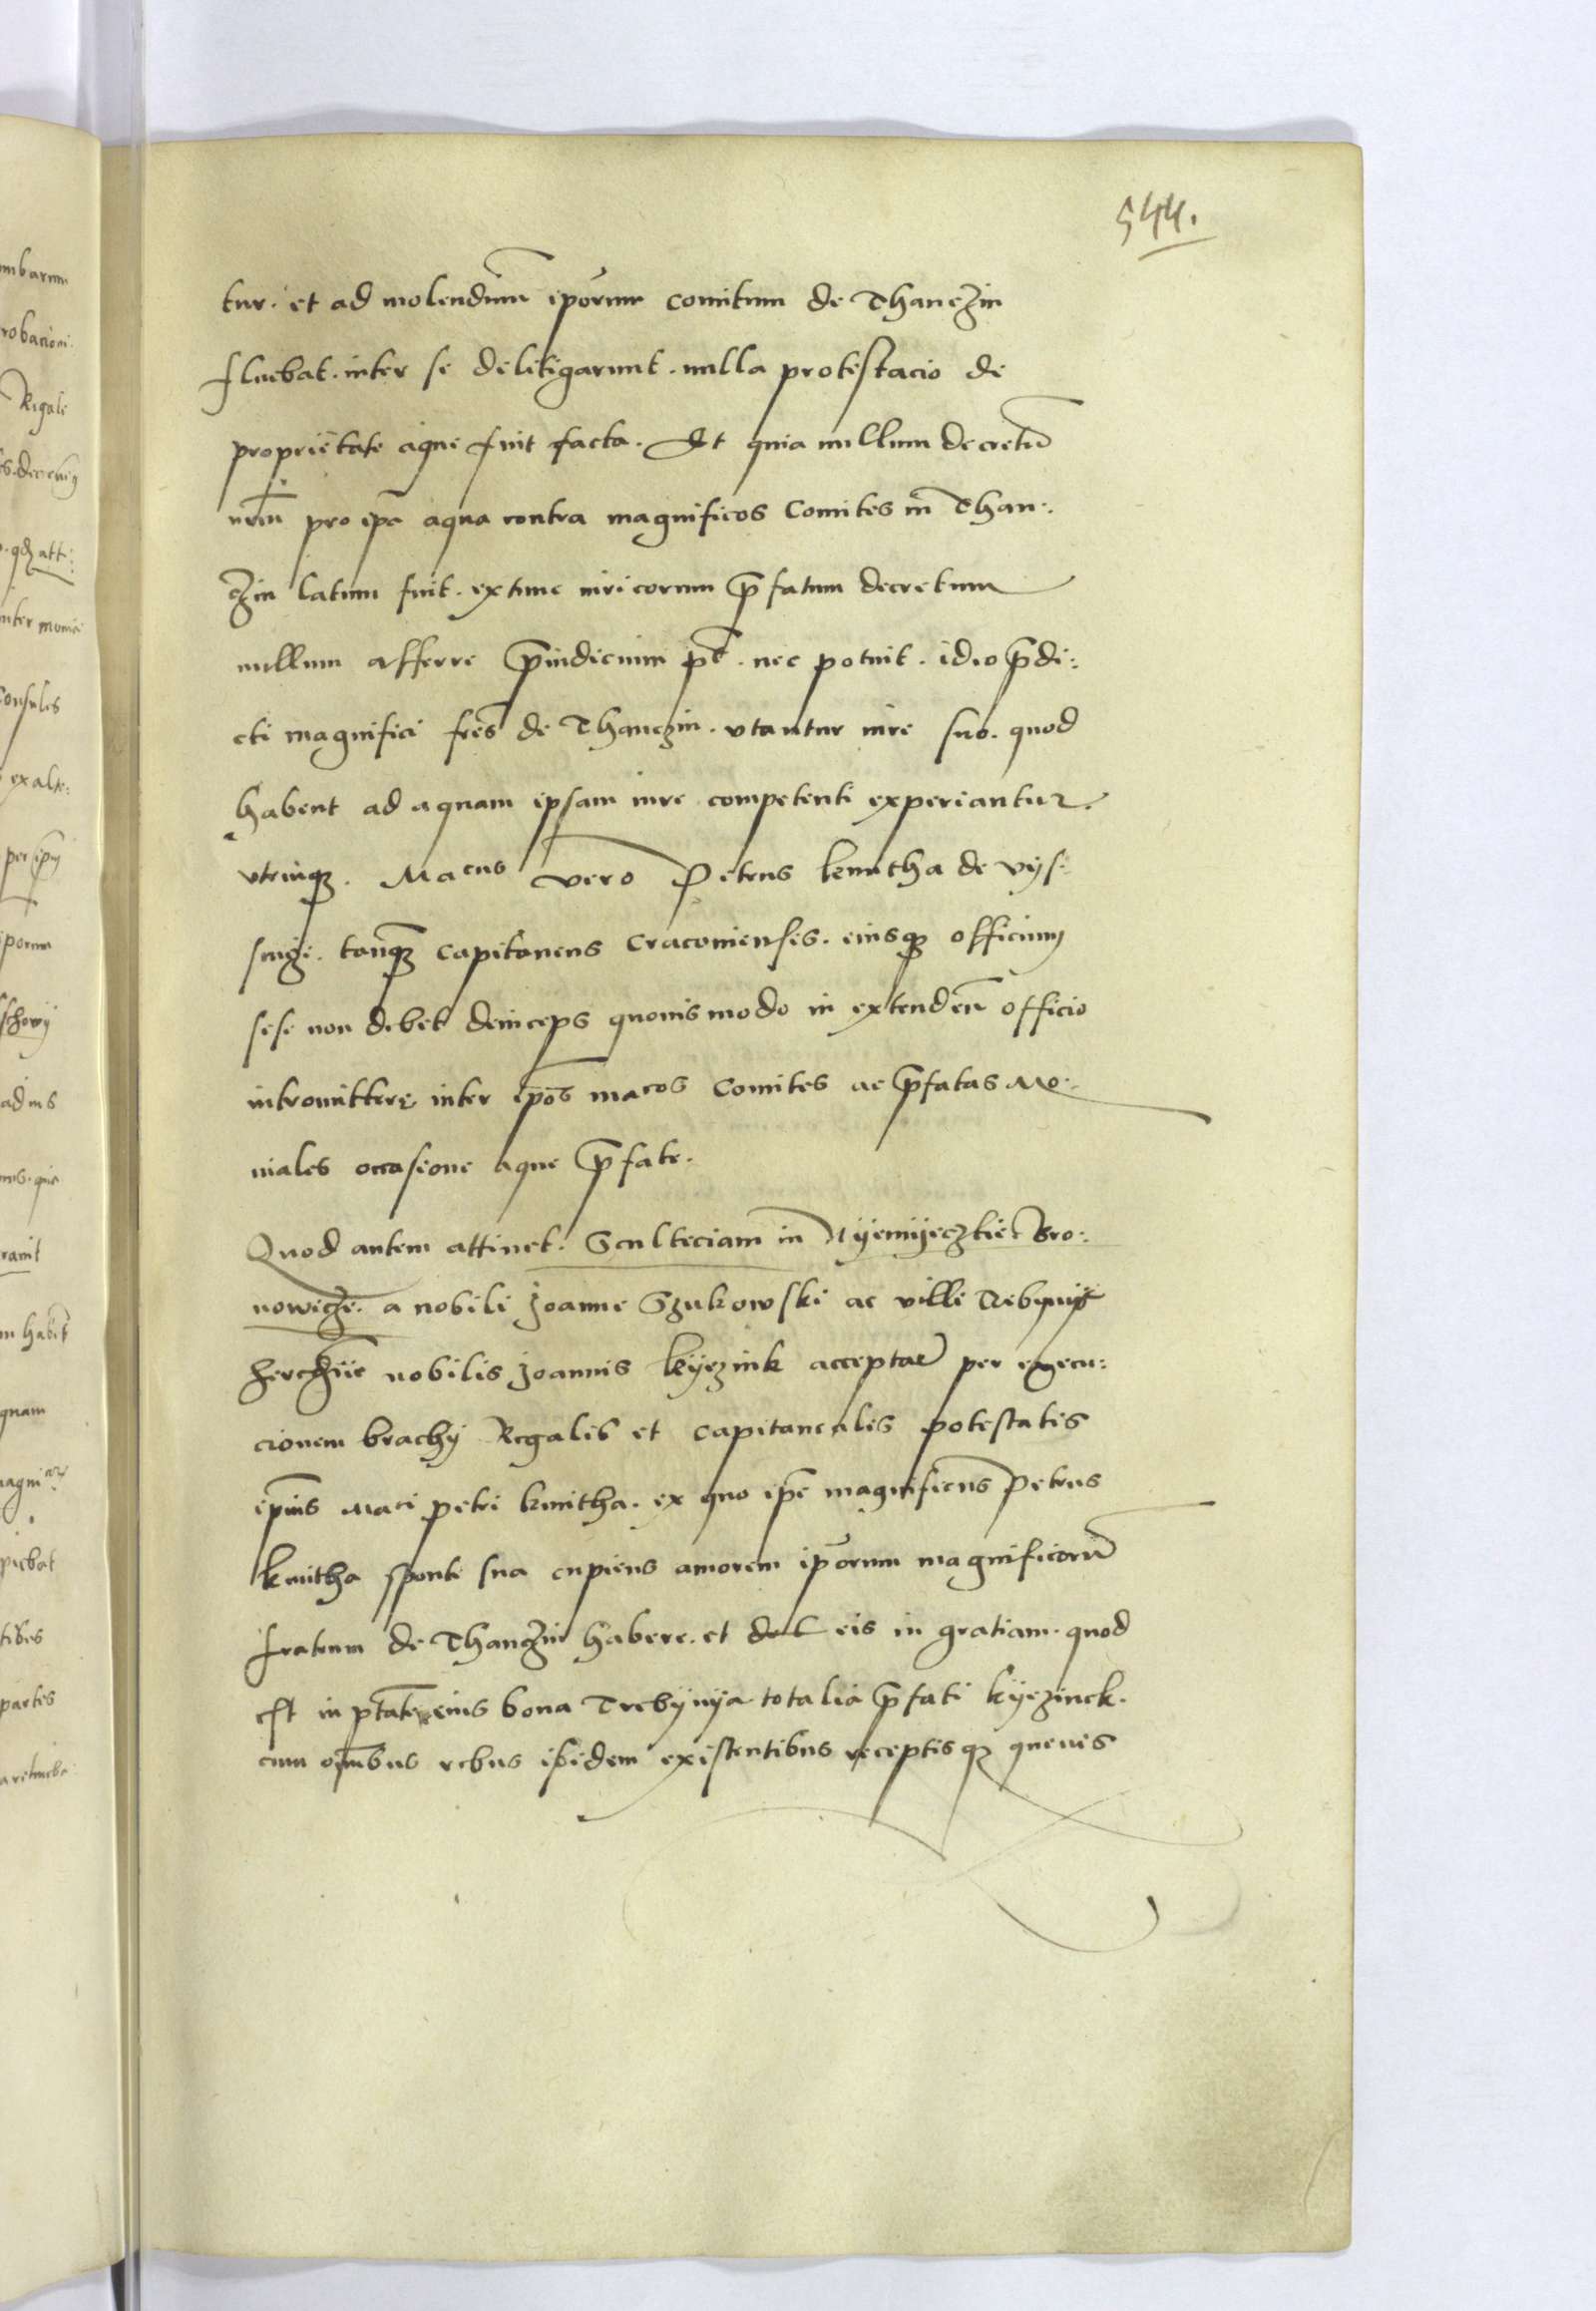 544.
tur. et ad molendinũ ipõrum comitum de Thanczin
fluebat. inter se delitigarunt. nulla protestacio de
proprietate aque fuit facta. Et quia nullum decretũ
nrm̃ pro ip̃a aqua contra magnificos Comites in Than:
czin latum fuit. extunc iuricorum p̃fatum decretum
nullum afferre p̃iudicium pt̃. nec potuit. ideo p̃di:
cti magnifici fres̃ de Thanczin. vtantur iure suo. quod
habent ad aquam ipsam iure competenti experiantur.
vtrinqȝ. Macus vero Petrus kmitha de vys:
snige. tanqȝ capitaneus cracouienses. eiusqȝ officium
sese non debet deinceps quouismodo in extenden̄ officio
intromittere inter ip̃os macos Comites ac p̃fatas Mo:
niales occasione aque p̃fate.
Quod autem attinet. Sculteciam in Nyemyeczkie Bro:
nowicze. a nobili Joanne Szukowski ac ville
nobilis Joannis kyezink acceptar̃ per execu:
cionem brachy Regalis et capitanealis potestatis
ip̃ius Maci petri kmitha. ex quo ip̃e magnificus Petrus
kmitha sponte sua cupiens amorem ipõrum magnificorũ
fratrum de Thanczin habere. et eis in gratiam. quod
est in ptãte eius bona Trebynya totalia p̃fati kyezinck.
cum om̃ibus rebus ibidem existentibus receptisqȝ queuis
mbarum
robacioni.
Regale
Consules
exalte:
porum
ad ius
rauit
quam
partes